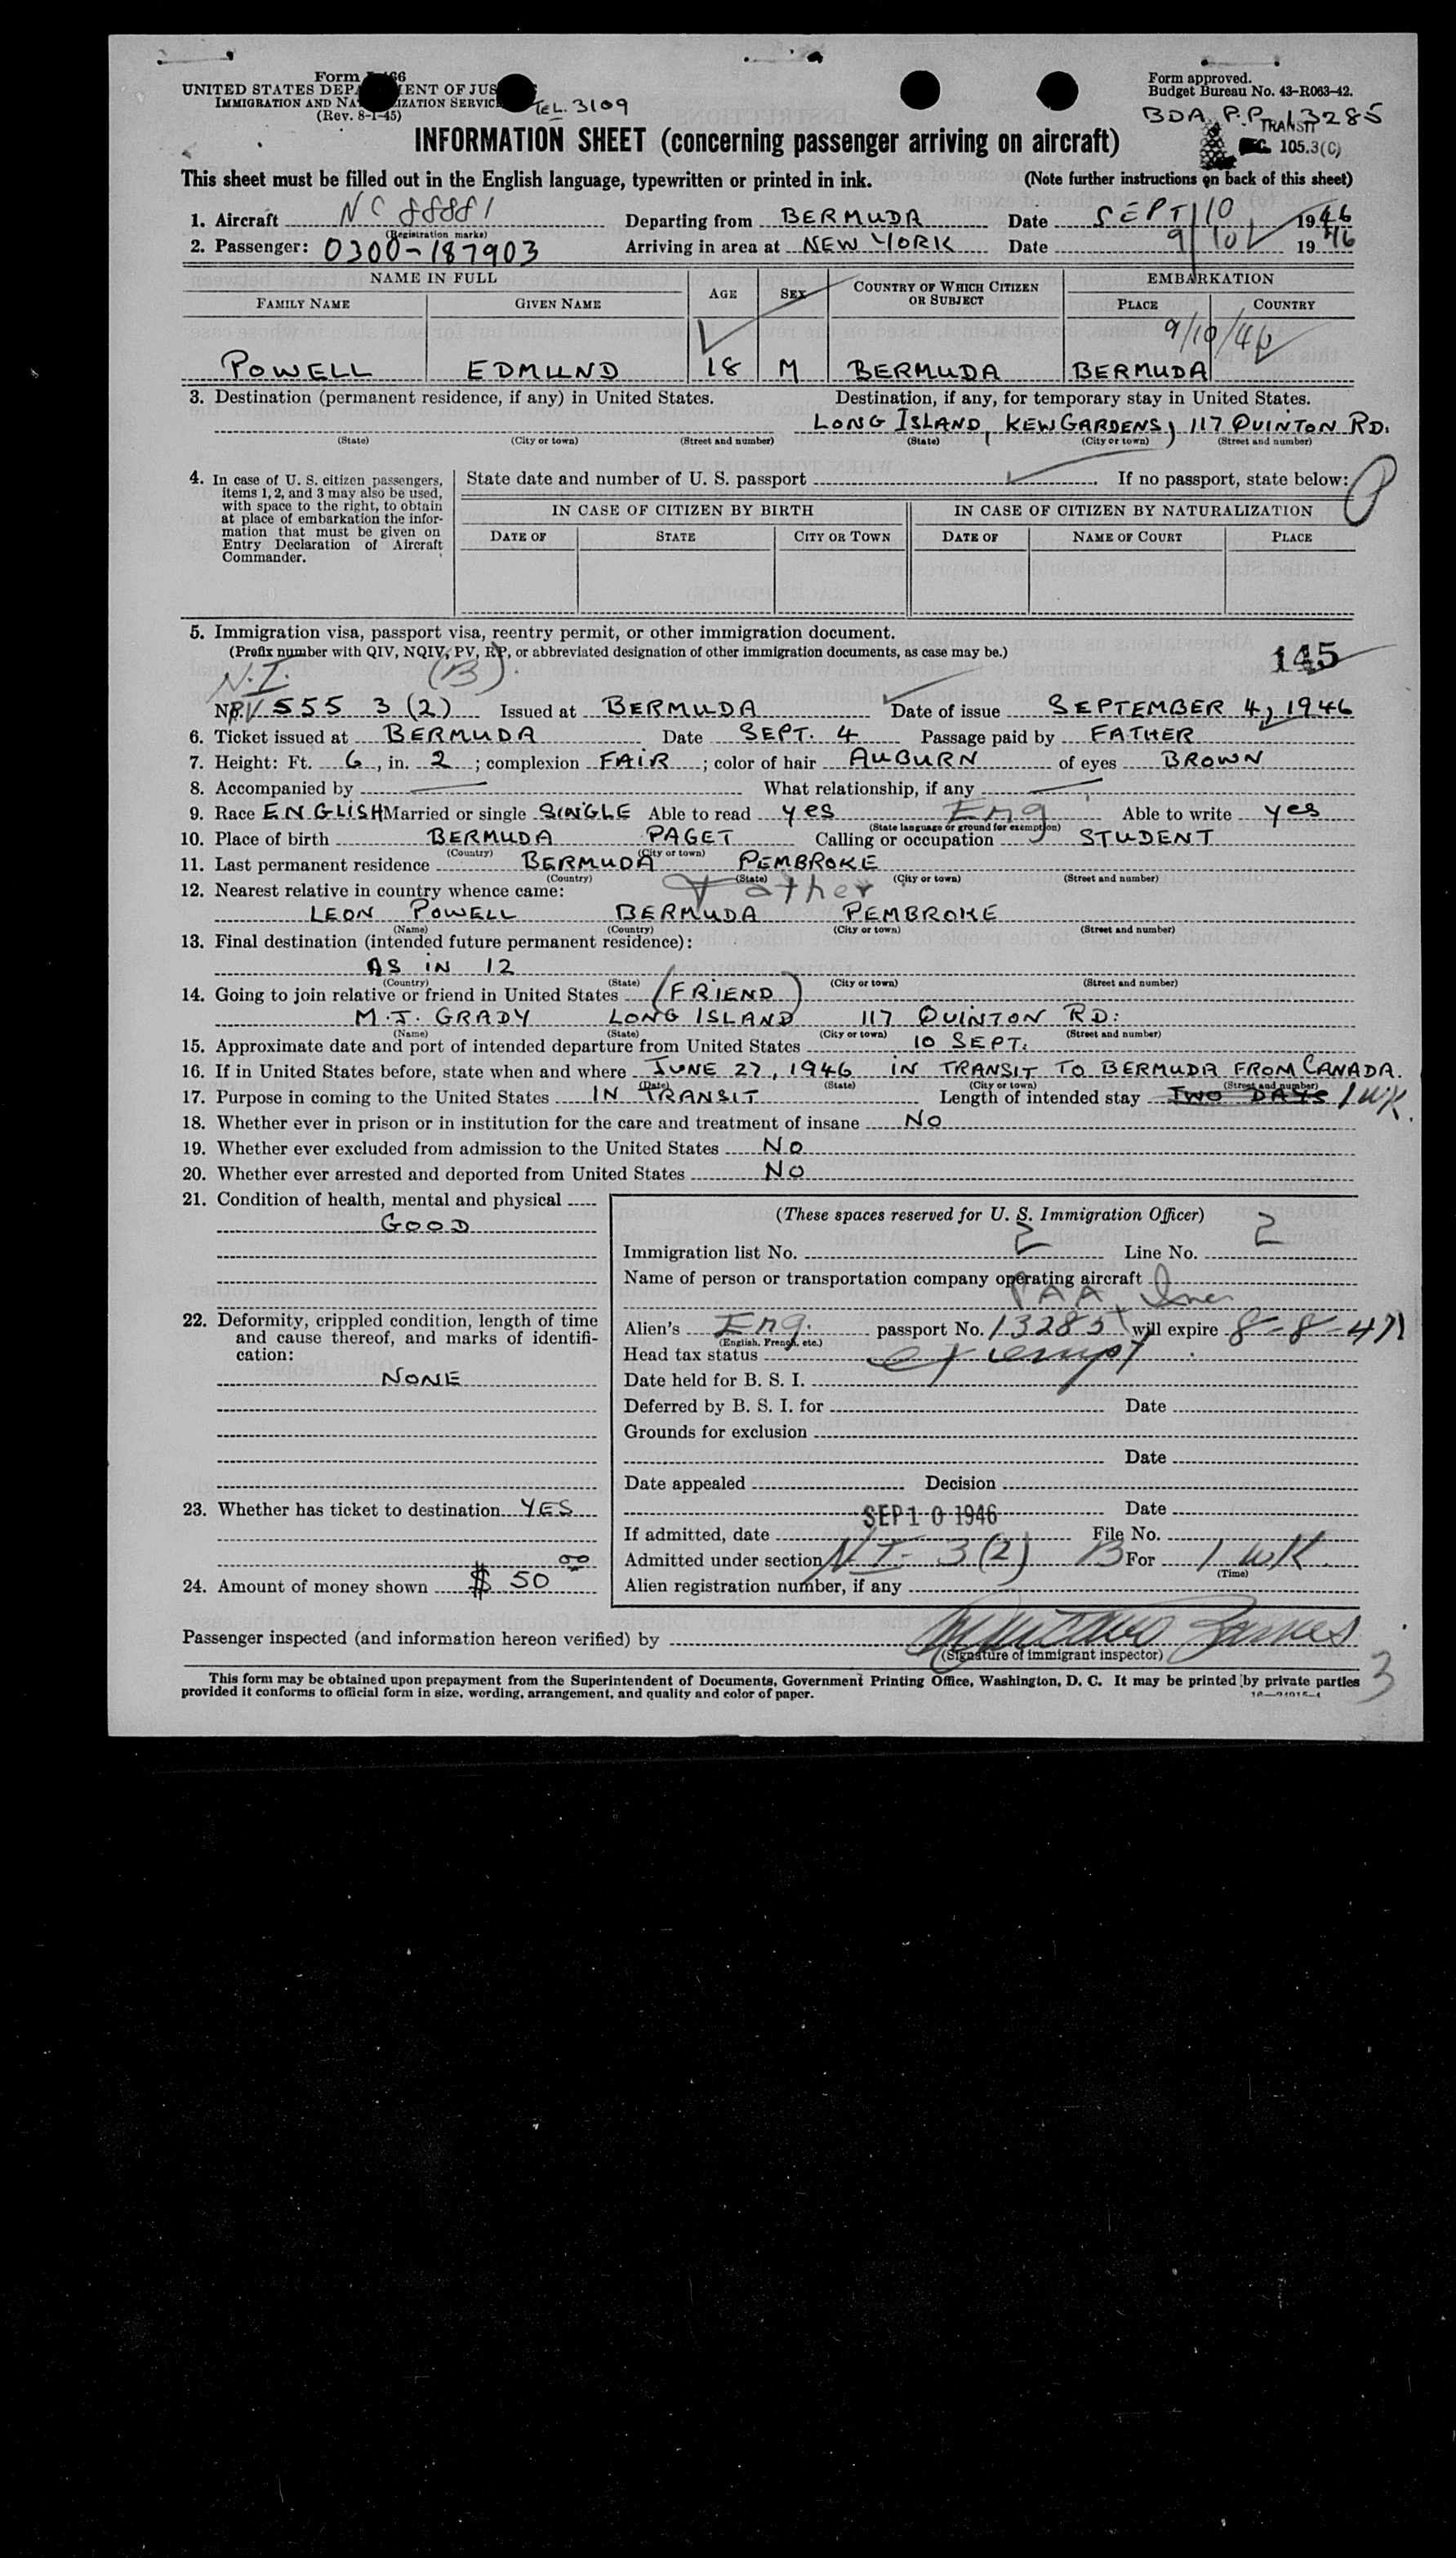 Form I-466
UNITED STATES DEPARTMENT OF JUSTICE
IMMIGRATION AND NATURALIZATION SERVICE
(Rev. 8-1-45)
TEL. 3109
Form approved.
Budget Bureau No. 43-R063-42.
BDA. P.P. 13285
TRANSIT
105.3(C)
INFORMATION SHEET (concerning passenger arriving on aircraft)
This sheet must be filled out in the English language, typewritten or printed in ink. (Note further instructions on back of this sheet)
1. Aircraft NC 88881 Departing from BERMUDA Date SEPT 10 1946
(Registration marks)
2. Passenger: 0300-187903 Arriving in area at NEW YORK Date 9/10 1946
NAME IN FULL AGE SEX COUNTRY OF WHICH CITIZEN OR SUBJECT EMBARKATION
FAMILY NAME GIVEN NAME PLACE COUNTRY
9/10/46
POWELL EDMUND 18 M BERMUDA BERMUDA
3. Destination (permanent residence, if any) in United States. Destination, if any, for temporary stay in United States.
LONG ISLAND, KEW GARDENS, 117 QUINTON RD.
(State) (City or town) (Street and number) (State) (City or town) (Street and number)
4. In case of U. S. citizen passengers, items 1, 2, and 3 may also be used, with space to the right, to obtain at place of embarkation the information that must be given on Entry Declaration of Aircraft Commander.
State date and number of U. S. passport If no passport, state below:
IN CASE OF CITIZEN BY BIRTH IN CASE OF CITIZEN BY NATURALIZATION
DATE OF STATE CITY OR TOWN DATE OF NAME OF COURT PLACE
5. Immigration visa, passport visa, reentry permit, or other immigration document.
(Prefix number with QIV, NQIV, PV, RP, or abbreviated designation of other immigration documents, as case may be.)
145
N.I. (B)
No. PV 555 3(2) Issued at BERMUDA Date of issue SEPTEMBER 4, 1946
6. Ticket issued at BERMUDA Date SEPT. 4 Passage paid by FATHER
7. Height: Ft. 6, in. 2; complexion FAIR; color of hair AUBURN of eyes BROWN
8. Accompanied by What relationship, if any
9. Race ENGLISH Married or single SINGLE Able to read yes Eng Able to write yes
(State language or ground for exemption)
10. Place of birth BERMUDA PAGET Calling or occupation STUDENT
(Country) (City or town)
11. Last permanent residence BERMUDA PEMBROKE
(Country) (State) (City or town) (Street and number)
12. Nearest relative in country whence came: Father
LEON POWELL BERMUDA PEMBROKE
(Name) (Country) (City or town) (Street and number)
13. Final destination (intended future permanent residence):
AS IN 12
(Country) (State) (City or town) (Street and number)
14. Going to join relative or friend in United States (FRIEND)
M.J. GRADY LONG ISLAND 117 QUINTON RD:
(Name) (State) (City or town) (Street and number)
15. Approximate date and port of intended departure from United States 10 SEPT.
16. If in United States before, state when and where JUNE 27, 1946 IN TRANSIT TO BERMUDA FROM CANADA.
(Date) (State) (City or town) (Street and number)
17. Purpose in coming to the United States IN TRANSIT Length of intended stay TWO DAYS 1 WK.
18. Whether ever in prison or in institution for the care and treatment of insane NO
19. Whether ever excluded from admission to the United States NO
20. Whether ever arrested and deported from United States NO
21. Condition of health, mental and physical
GOOD
22. Deformity, crippled condition, length of time and cause thereof, and marks of identification:
NONE
23. Whether has ticket to destination YES
24. Amount of money shown $ 50 00
(These spaces reserved for U. S. Immigration Officer)
Immigration list No. 2 Line No. 2
Name of person or transportation company operating aircraft
PAA Inc
Alien's Eng. passport No. 13285 will expire 8-8-47
(English, French, etc.)
Head tax status exempt
Date held for B. S. I.
Deferred by B. S. I. for Date
Grounds for exclusion
Date
Date appealed Decision
Date
SEP 10 1946
If admitted, date File No.
Admitted under section NI- 3(2) B For 1 WK.
(Time)
Alien registration number, if any
Passenger inspected (and information hereon verified) by
(Signature of immigrant inspector)
3
This form may be obtained upon prepayment from the Superintendent of Documents, Government Printing Office, Washington, D. C. It may be printed by private parties
provided it conforms to official form in size, wording, arrangement, and quality and color of paper.